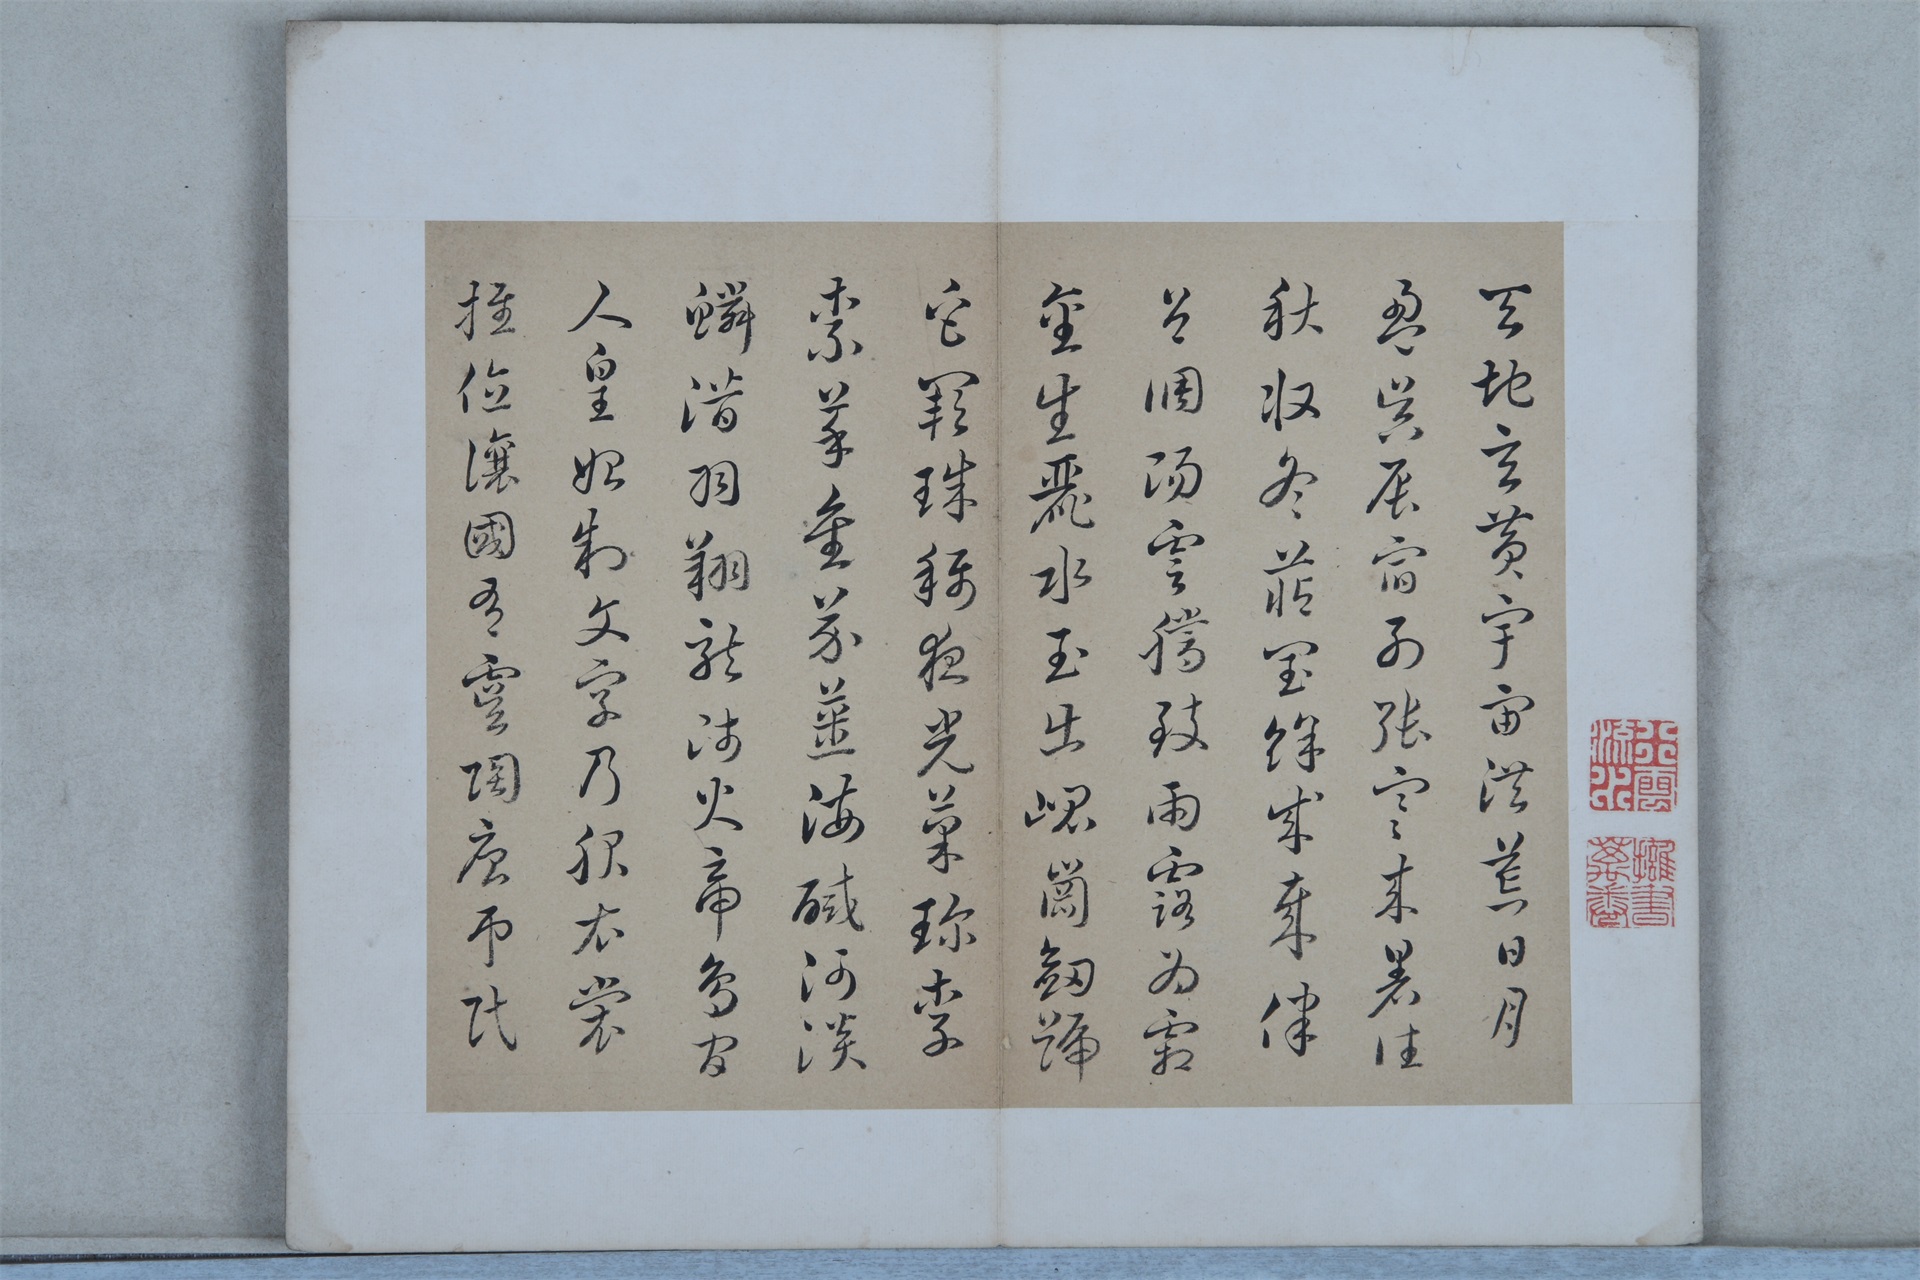 天地玄黃宇宙洪荒日月
盈昃辰宿列張寒來暑往
秋收冬藏閏餘成歲律
呂調陽雲騰致雨露為霜
金生麗水玉出崑岡劍號
巨闕珠稱夜光菓珍李
柰菜重芥薑海鹹河淡
鱗潛羽翔龍師火帝鳥官
人皇始制文字乃服衣裳
推位讓國有虞陶唐弔民